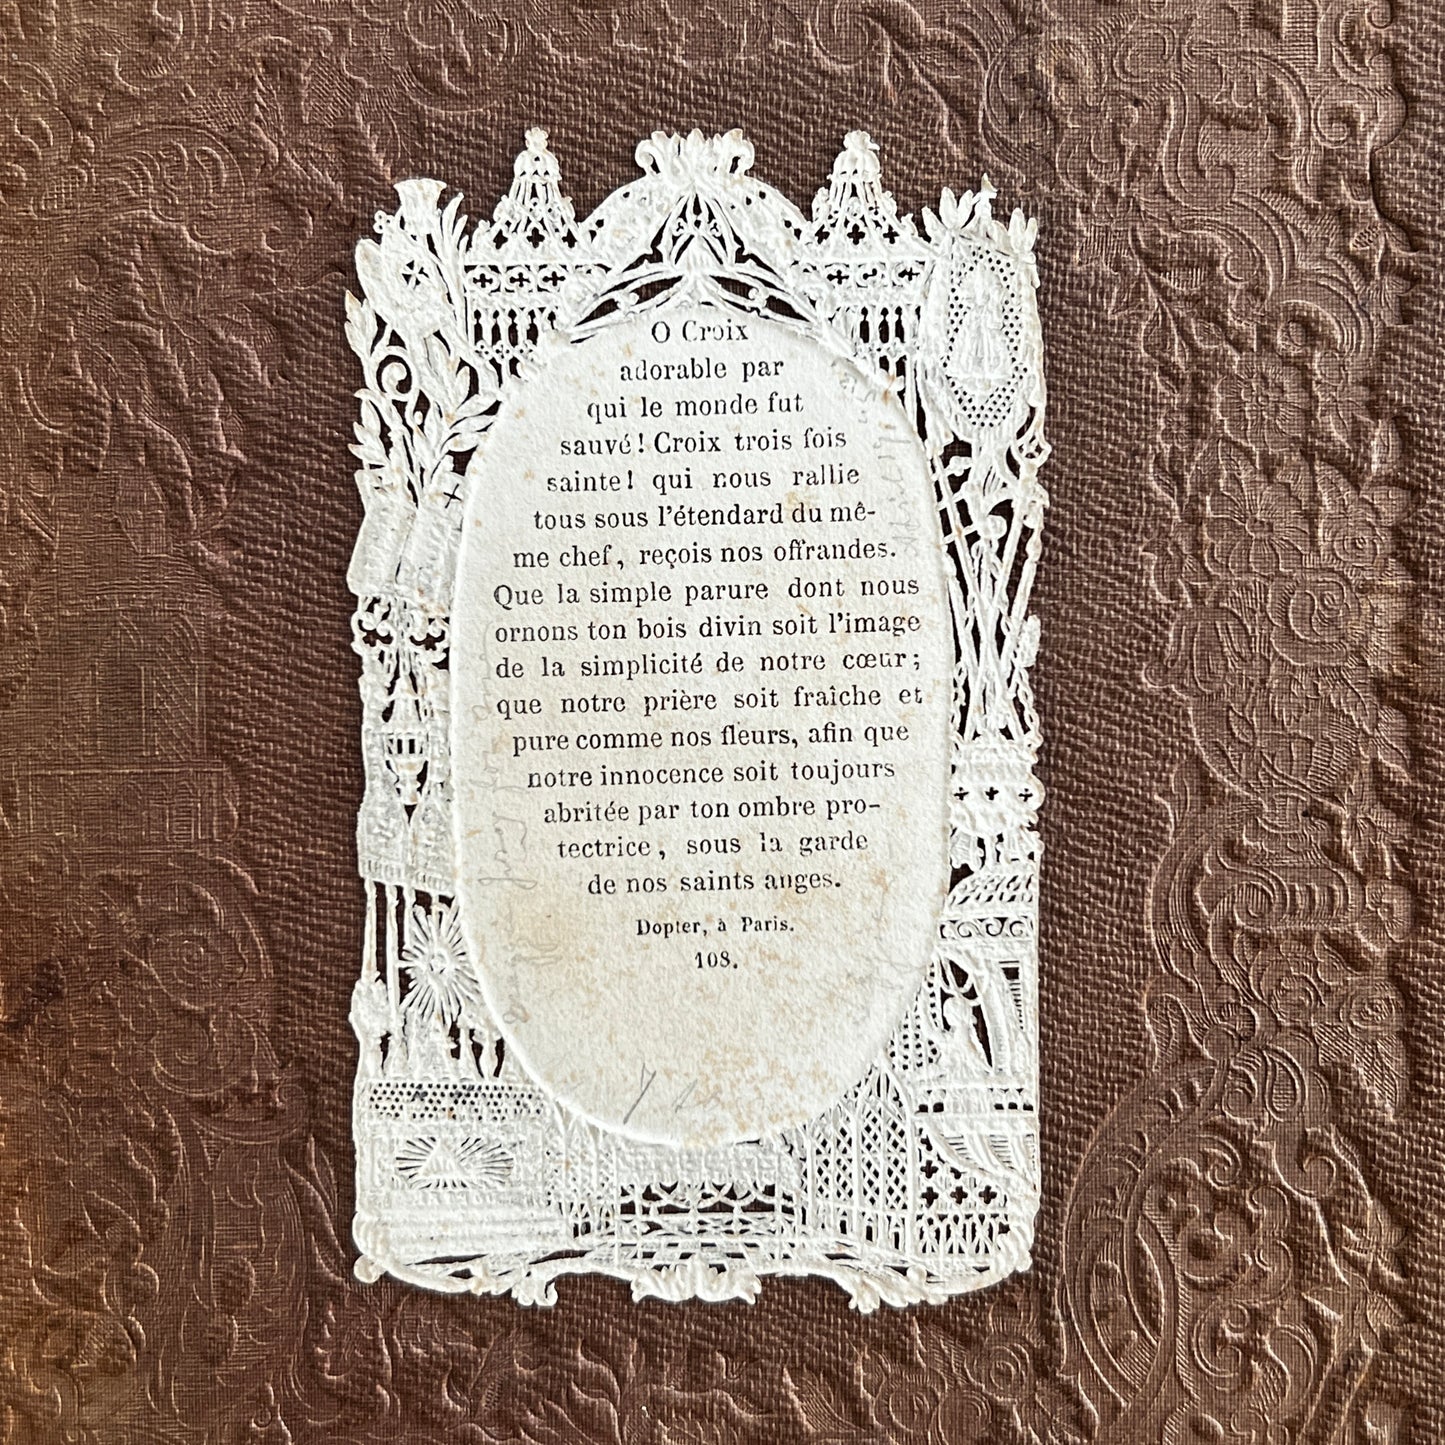 O Croix
adorable par
qui le monde fut
sauvé ! Croix trois fois
sainte ! qui nous rallie
tous sous l'étendard du mê-
me chef, reçois nos offrandes.
Que la simple parure dont nous
ornons ton bois divin soit l'image
de la simplicité de notre cœur ;
que notre prière soit fraîche et
pure comme nos fleurs, afin que
notre innocence soit toujours
abritée par ton ombre pro-
tectrice, sous la garde
de nos saints anges.
Dopter, à Paris.
108.